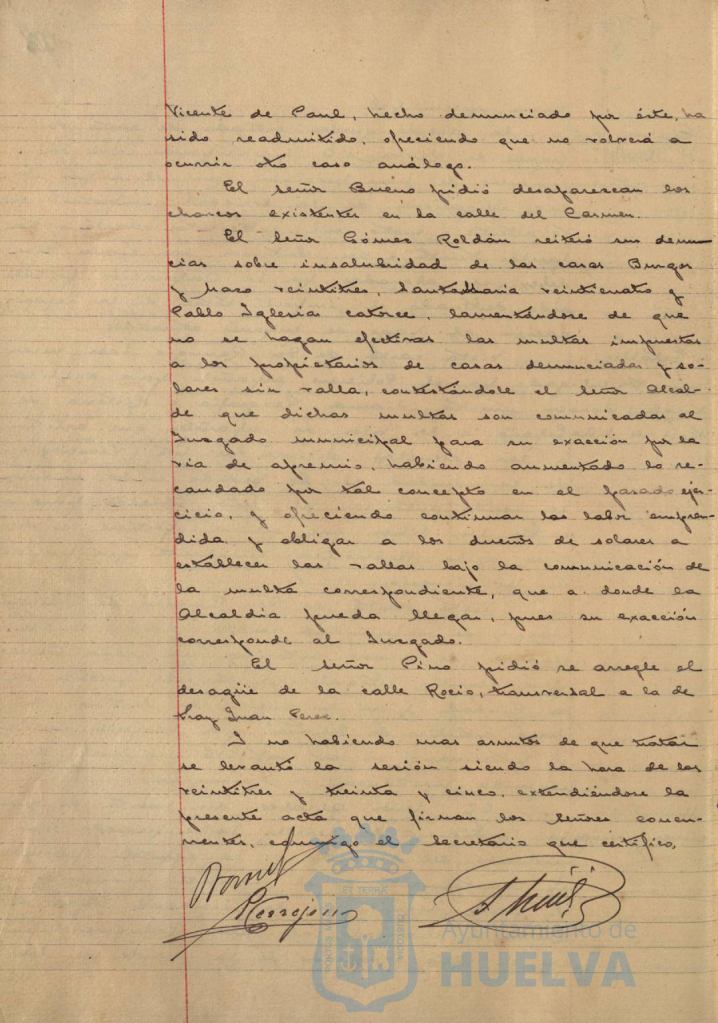 Vicente de Paul, hecho denunciado por éste, ha
sido readmitido, ofreciendo que no volverá a
ocurrir otro caso análogo.
El señor Bueno pidió desaparezcan los
charcos existentes en la calle del Carmen.
El señor Gómez Roldán reiteró sus denun-
cias sobre insalubridad de las casas Burgos
y Mazo veintitres, Santa Maria veinticuatro y
Pablo Iglesias catorce, lamentándose de que
no se hagan efectivas las multas impuestas
a los propietarios de casas denunciadas y so-
lares sin valla, contestándole el señor Alcal-
de que dichas multas son comunicadas al
Juzgado municipal para su exacción por la
via de apremio, habiendo aumentado lo re-
caudado por tal concepto en el pasado ejer-
cicio, y ofreciendo continuar las labor empren-
dida y obligar a los dueños de solares a
establecer las vallas bajo la comunicación de
la multa correspondiente, que a donde la
Alcaldia pueda llegar, pues su exacción
corresponde al Juzgado.
El señor Pino pidió se arregle el
desagüe de la calle Rocio, transversal a la de
Fray Juan Perez.
Y no habiendo mas asuntos de que tratar
se levantó la sesión siendo la hora de las
veintitres y treinta y cinco, extendiéndose la
presente acta que firman los señores concu-
rrentes, conmigo el secretario que certifico.
Ayuntamiento de
HUELVA